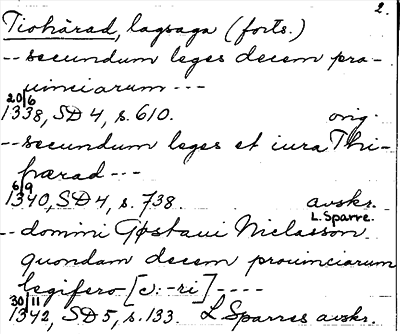 2.
Tiohärad, lagsaga (forts.)
-- secundum leges decem pro-
uinciarum ---
20/6
1338, SD 4, s. 610. orig.
-- secundum leges et iura Thi-
hærad ---
6/9
1340, SD 4, s. 738. avskr.
L. Sparre.
-- domini Gøstaui Niclasson
quondam decem prouinciarum
legifero [ɔ: -ri] ----
30/11
1342, SD 5, s. 133. L Sparres avskr.